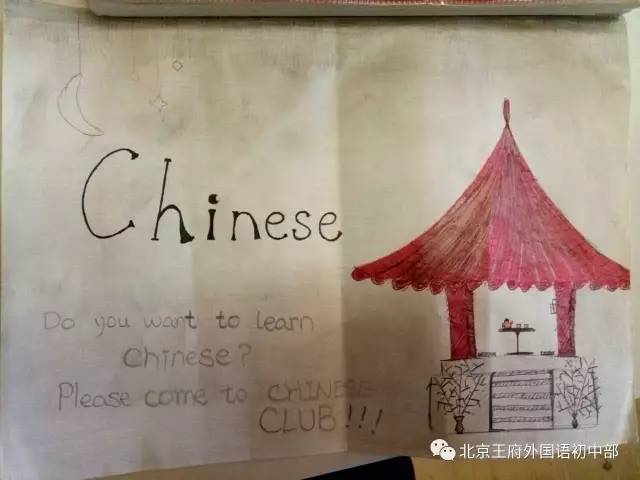 Chinese
Do you want to learn
chinese?
Please come to CHINESE
CLUB!!!
北京王府外国语初中部